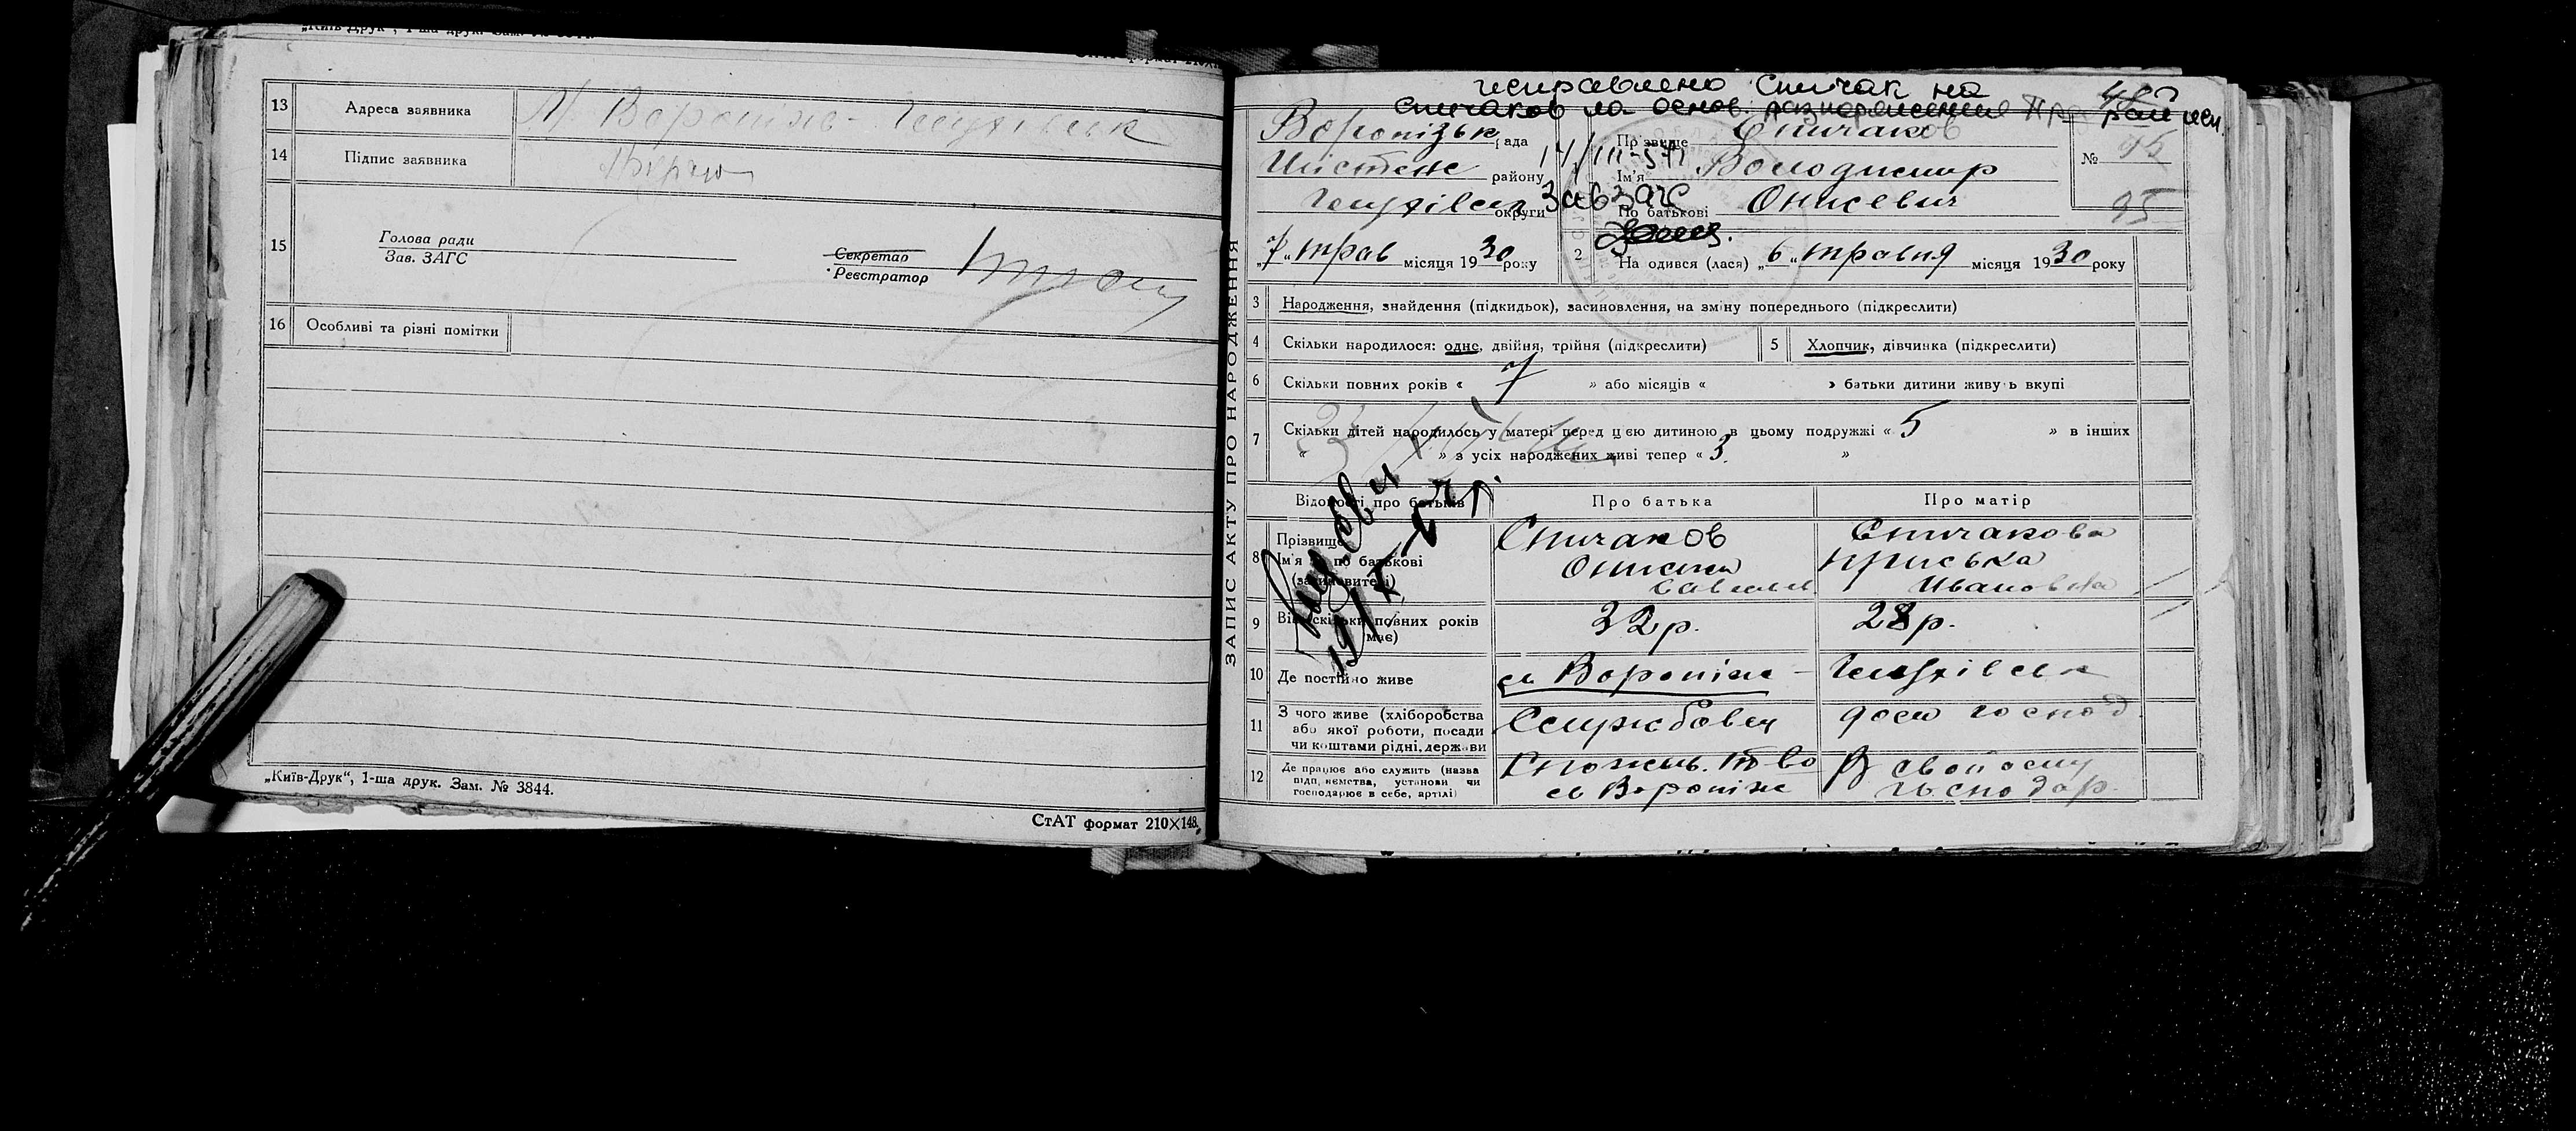 „Київ-Друк", 1-ша друк. Зам.
13 Адреса заявника М/ Вороніж-Глухівськ
14 Підпис заявника
15 Голова ради
Зав. ЗАГС
Секретар
Реєстратор
16 Особливі та різні помітки
„Київ-Друк“, 1-ша друк. Зам. № 3844.
СтАТ формат 210×148.
ЗАПИС АКТУ ПРО НАРОДЖЕННЯ
исправлено Спичак на
Спичаков на основ. распоряжения
Воронізьк рада
Шістен району
Глухівськ округи
14/III-57
Зав ЗАГС
Прізвище Спичаков
Ім'я Володимир
По батькові Онисевич
№ 95
95
„7“ трав місяця 1930 року
2 На одився (лася) „6“ травня місяця 1930 року
3 Народження, знайдення (підкидьок), засиновлення, на зміну попереднього (підкреслити)
4 Скільки народилося: одне, двійня, трійня (підкреслити)
5 Хлопчик, дівчинка (підкреслити)
6 Скільки повних років « 7 » або місяців « » батьки дитини живуть вкупі
7 Скільки дітей народилось у матері перед цією дитиною в цьому подружжі « 5 » в інших
« » з усіх народжених живі тепер « 3 »
Відомості про батьків Про батька Про матір
8 Прізвище
Ім'я по батькові
(засиновителі)
Спичаков
Онисим
Савельев
Спичакова
Приська
Ивановна
9 Вік (скільки повних років має) 32 р. 28 р.
10 Де постійно живе м Вороніж - Глухівськ
11 З чого живе (хліборобства
або якої роботи, посади
чи коштами рідні, держави
Службовец
дом господ
12 Де працює або служить (назва
підприємства, установи чи
господарює в себе, артілі)
Спожив. т-во
м Вороніж
В свойому
господар.